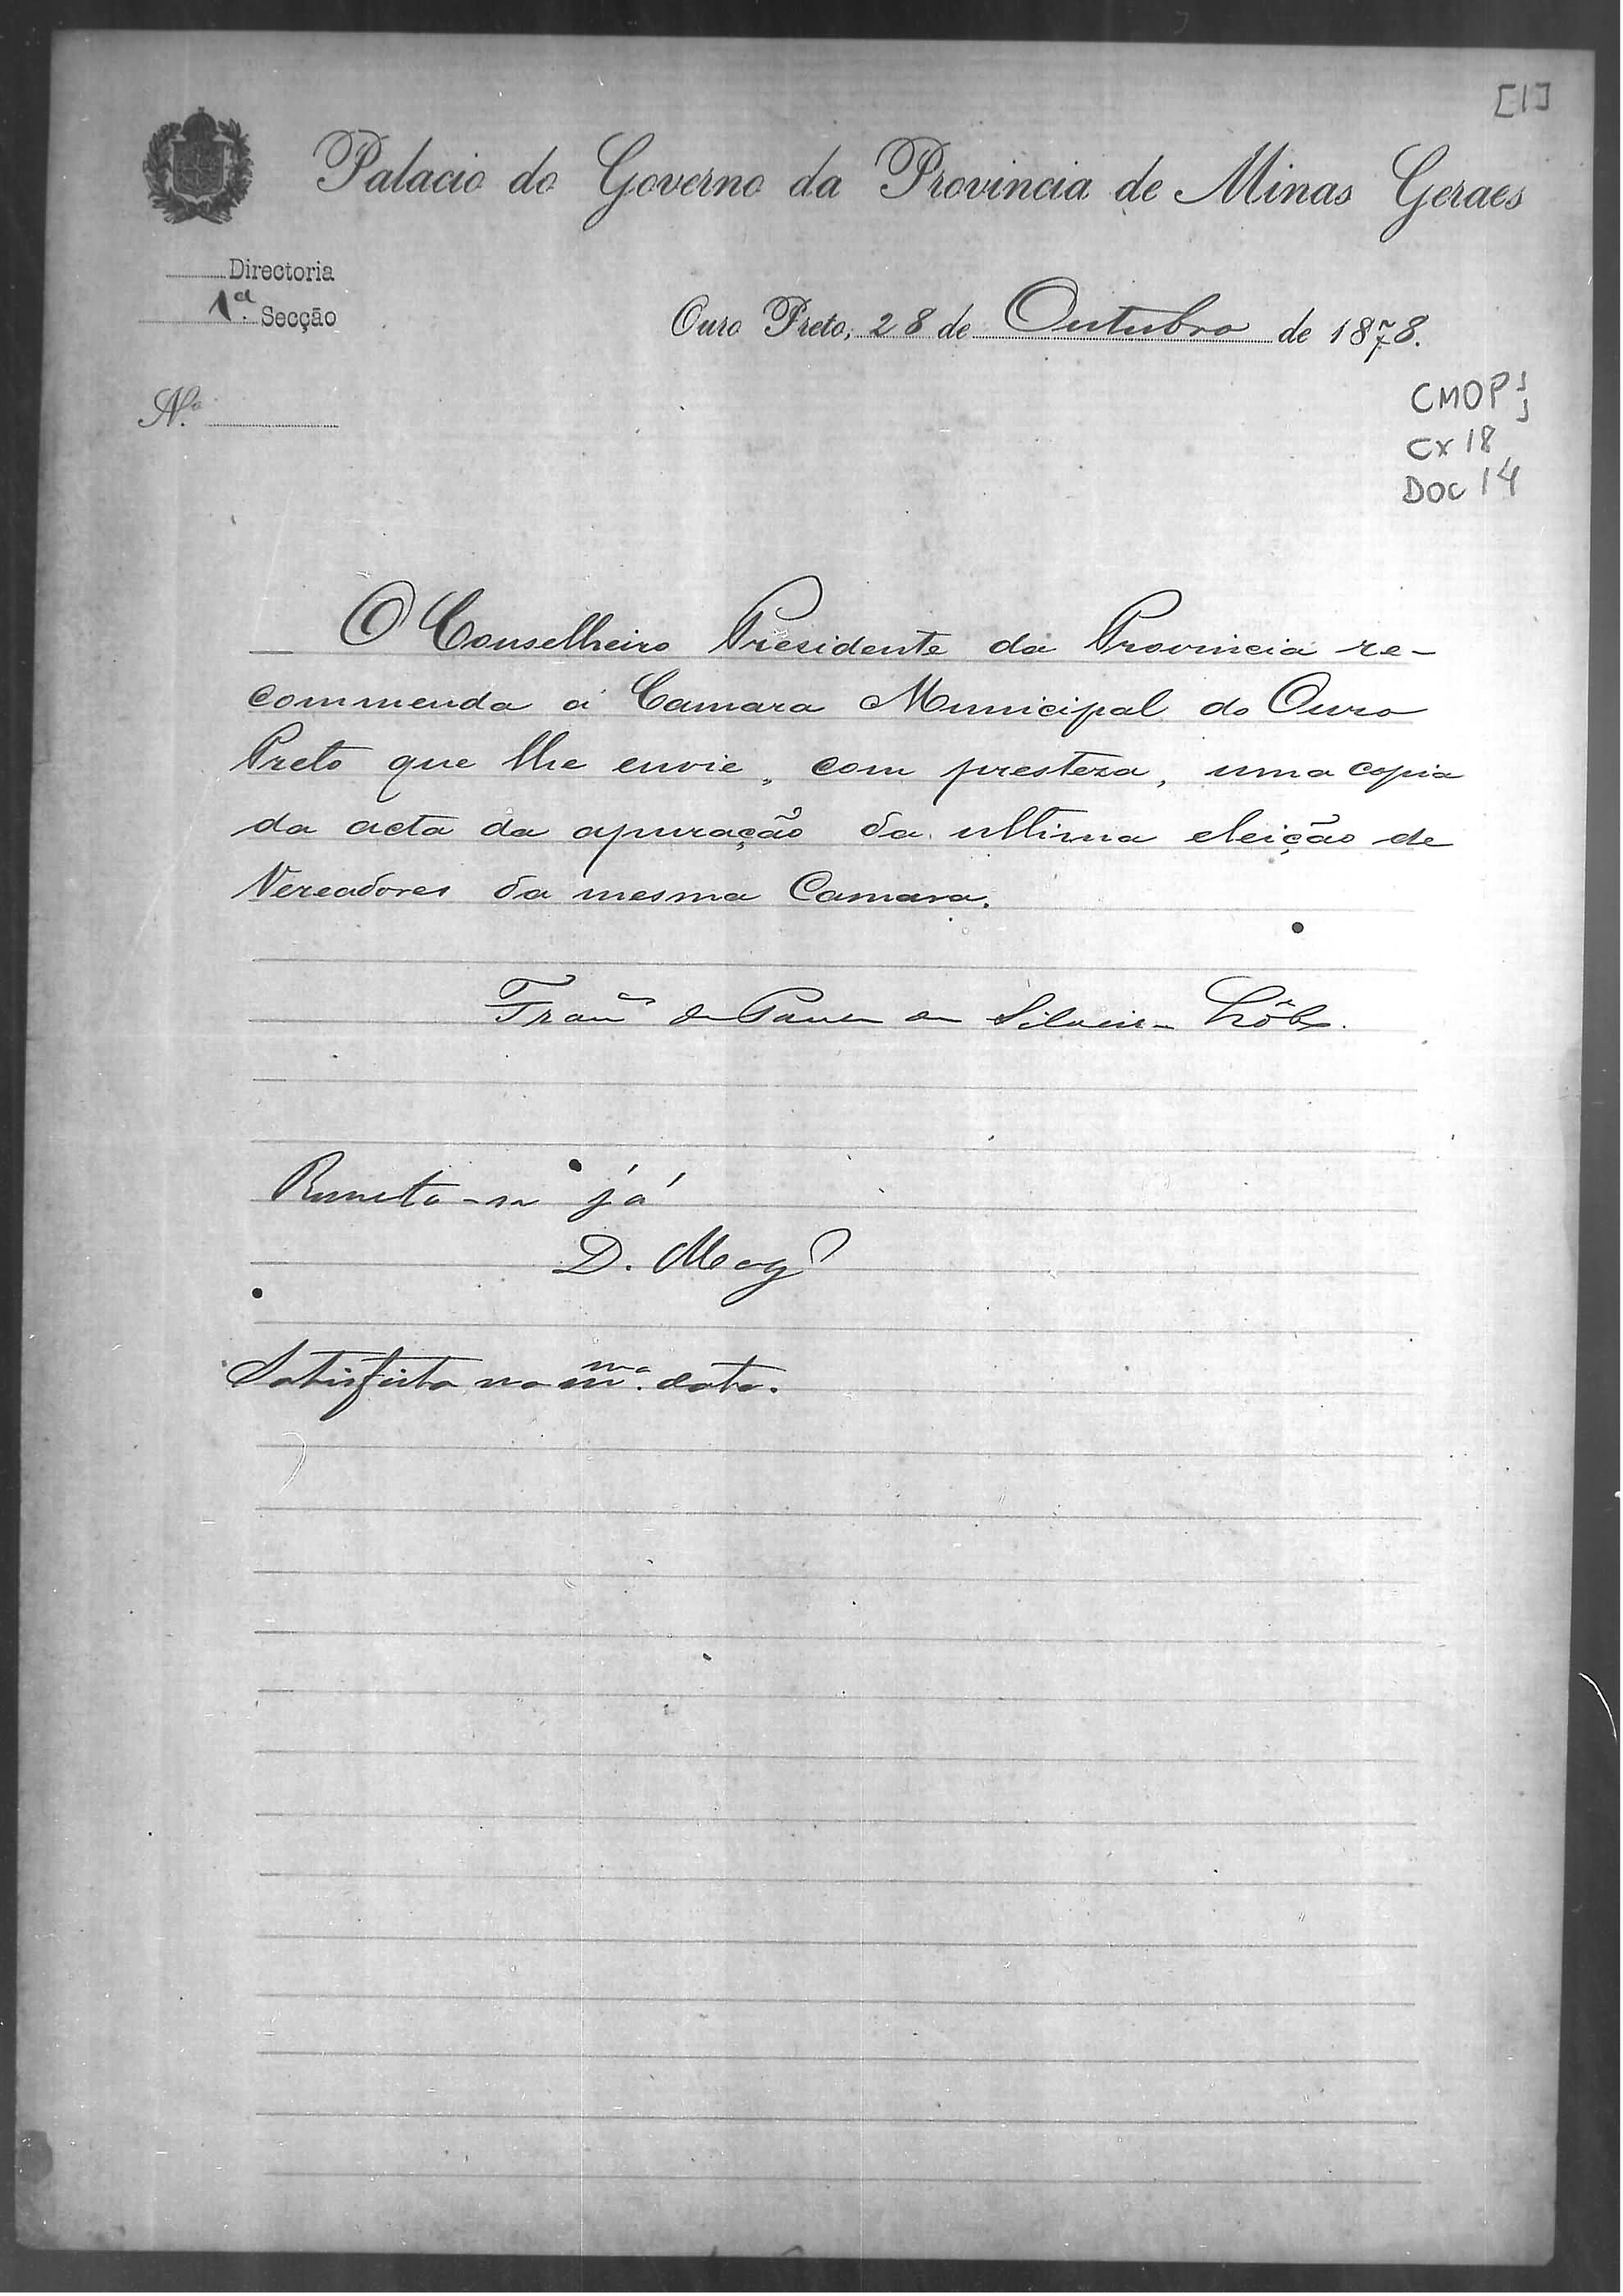 [1]
Palacio do Governo da Provincia de Minas Geraes
Directoria
1ª. Secção
Ouro Preto, 28 de Outubro de 1878.
Nº.
CMOP
CX 18
DOC 14
O Conselheiro Presidente da Provincia re-
commenda á Camara Municipal do Ouro
Preto que lhe envie, com presteza, uma copia
da acta da apuração da ultima eleição de
Vereadores da mesma Camara.
Franco de Paula da Silveira Lôbo.
Remeta-se já
D. Magº
Satisfeito na mma. data.